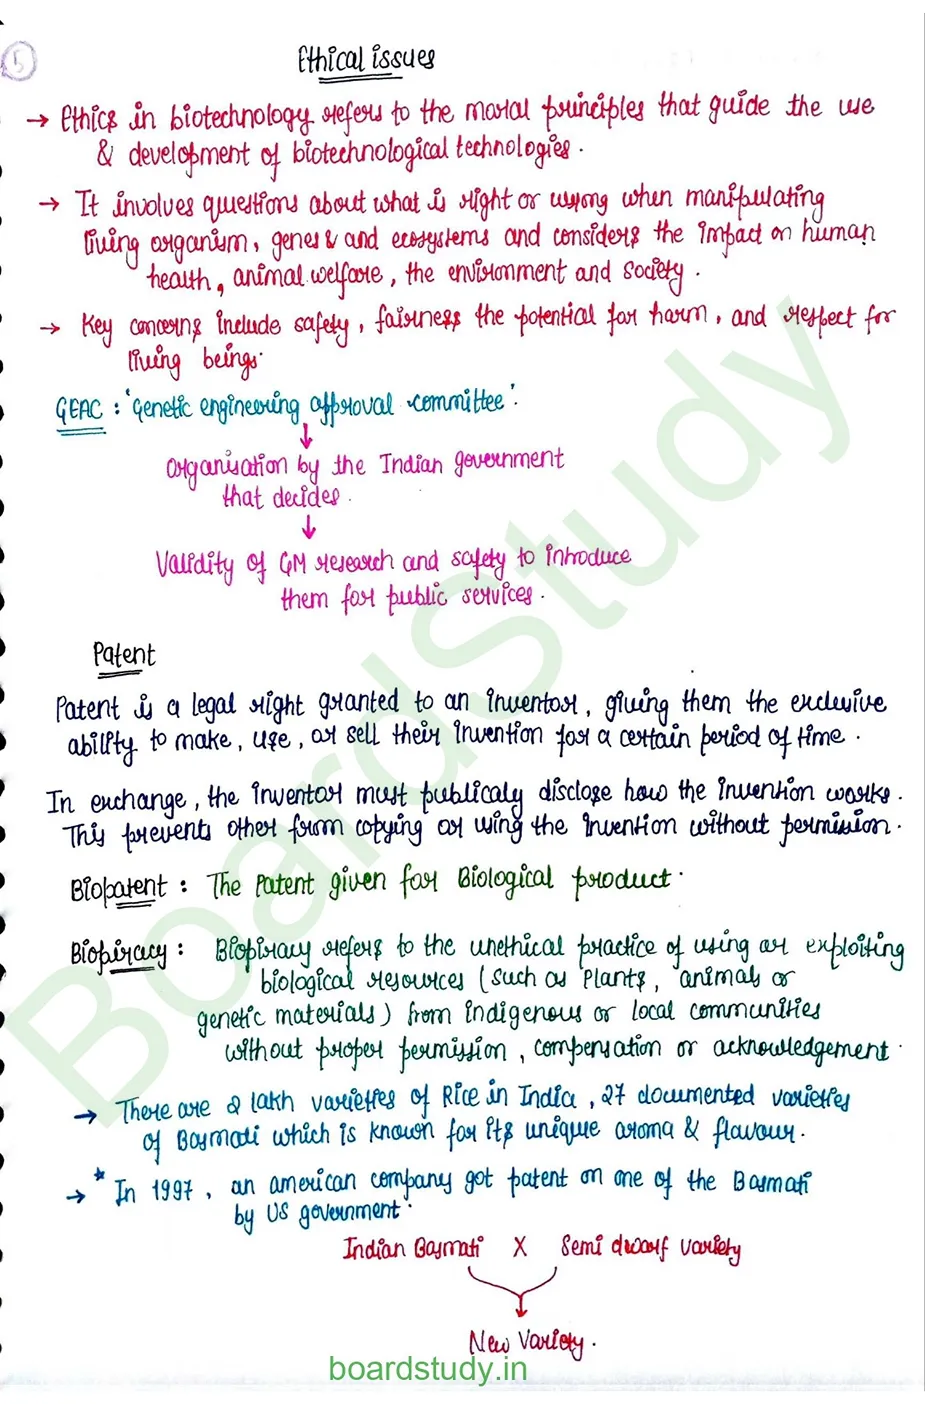 5
Ethical issues
→ Ethics in biotechnology refers to the moral principles that guide the use
& development of biotechnological technologies.
→ It involves questions about what is right or wrong when manipulating
living organism, genes & and ecosystems and considers the impact on human
health, animal welfare, the environment and society.
→ Key concerns include safety, fairness the potential for harm, and respect for
living beings.
GEAC : 'Genetic engineering approval committee'.
↓
Organisation by the Indian government
that decides.
↓
Validity of GM research and safety to introduce
them for public services.
Patent
Patent is a legal right granted to an inventor, giving them the exclusive
ability to make, use, or sell their invention for a certain period of time.
In exchange, the inventor must publicaly disclose how the invention works.
This prevents other from copying or using the invention without permission.
Biopatent : The Patent given for Biological product.
Biopiracy : Biopiracy refers to the unethical practice of using or exploiting
biological resources (such as Plants, animals or
genetic materials) from indigenous or local communities
without proper permission, compensation or acknowledgement.
→ There are 2 lakh varieties of Rice in India, 27 documented varieties
of Basmati which is known for its unique aroma & flavour.
→ * In 1997, an american company got patent on one of the Basmati
by US government.
Indian Basmati X Semi dwarf variety
New Variety.
boardstudy.in
BoardStudy